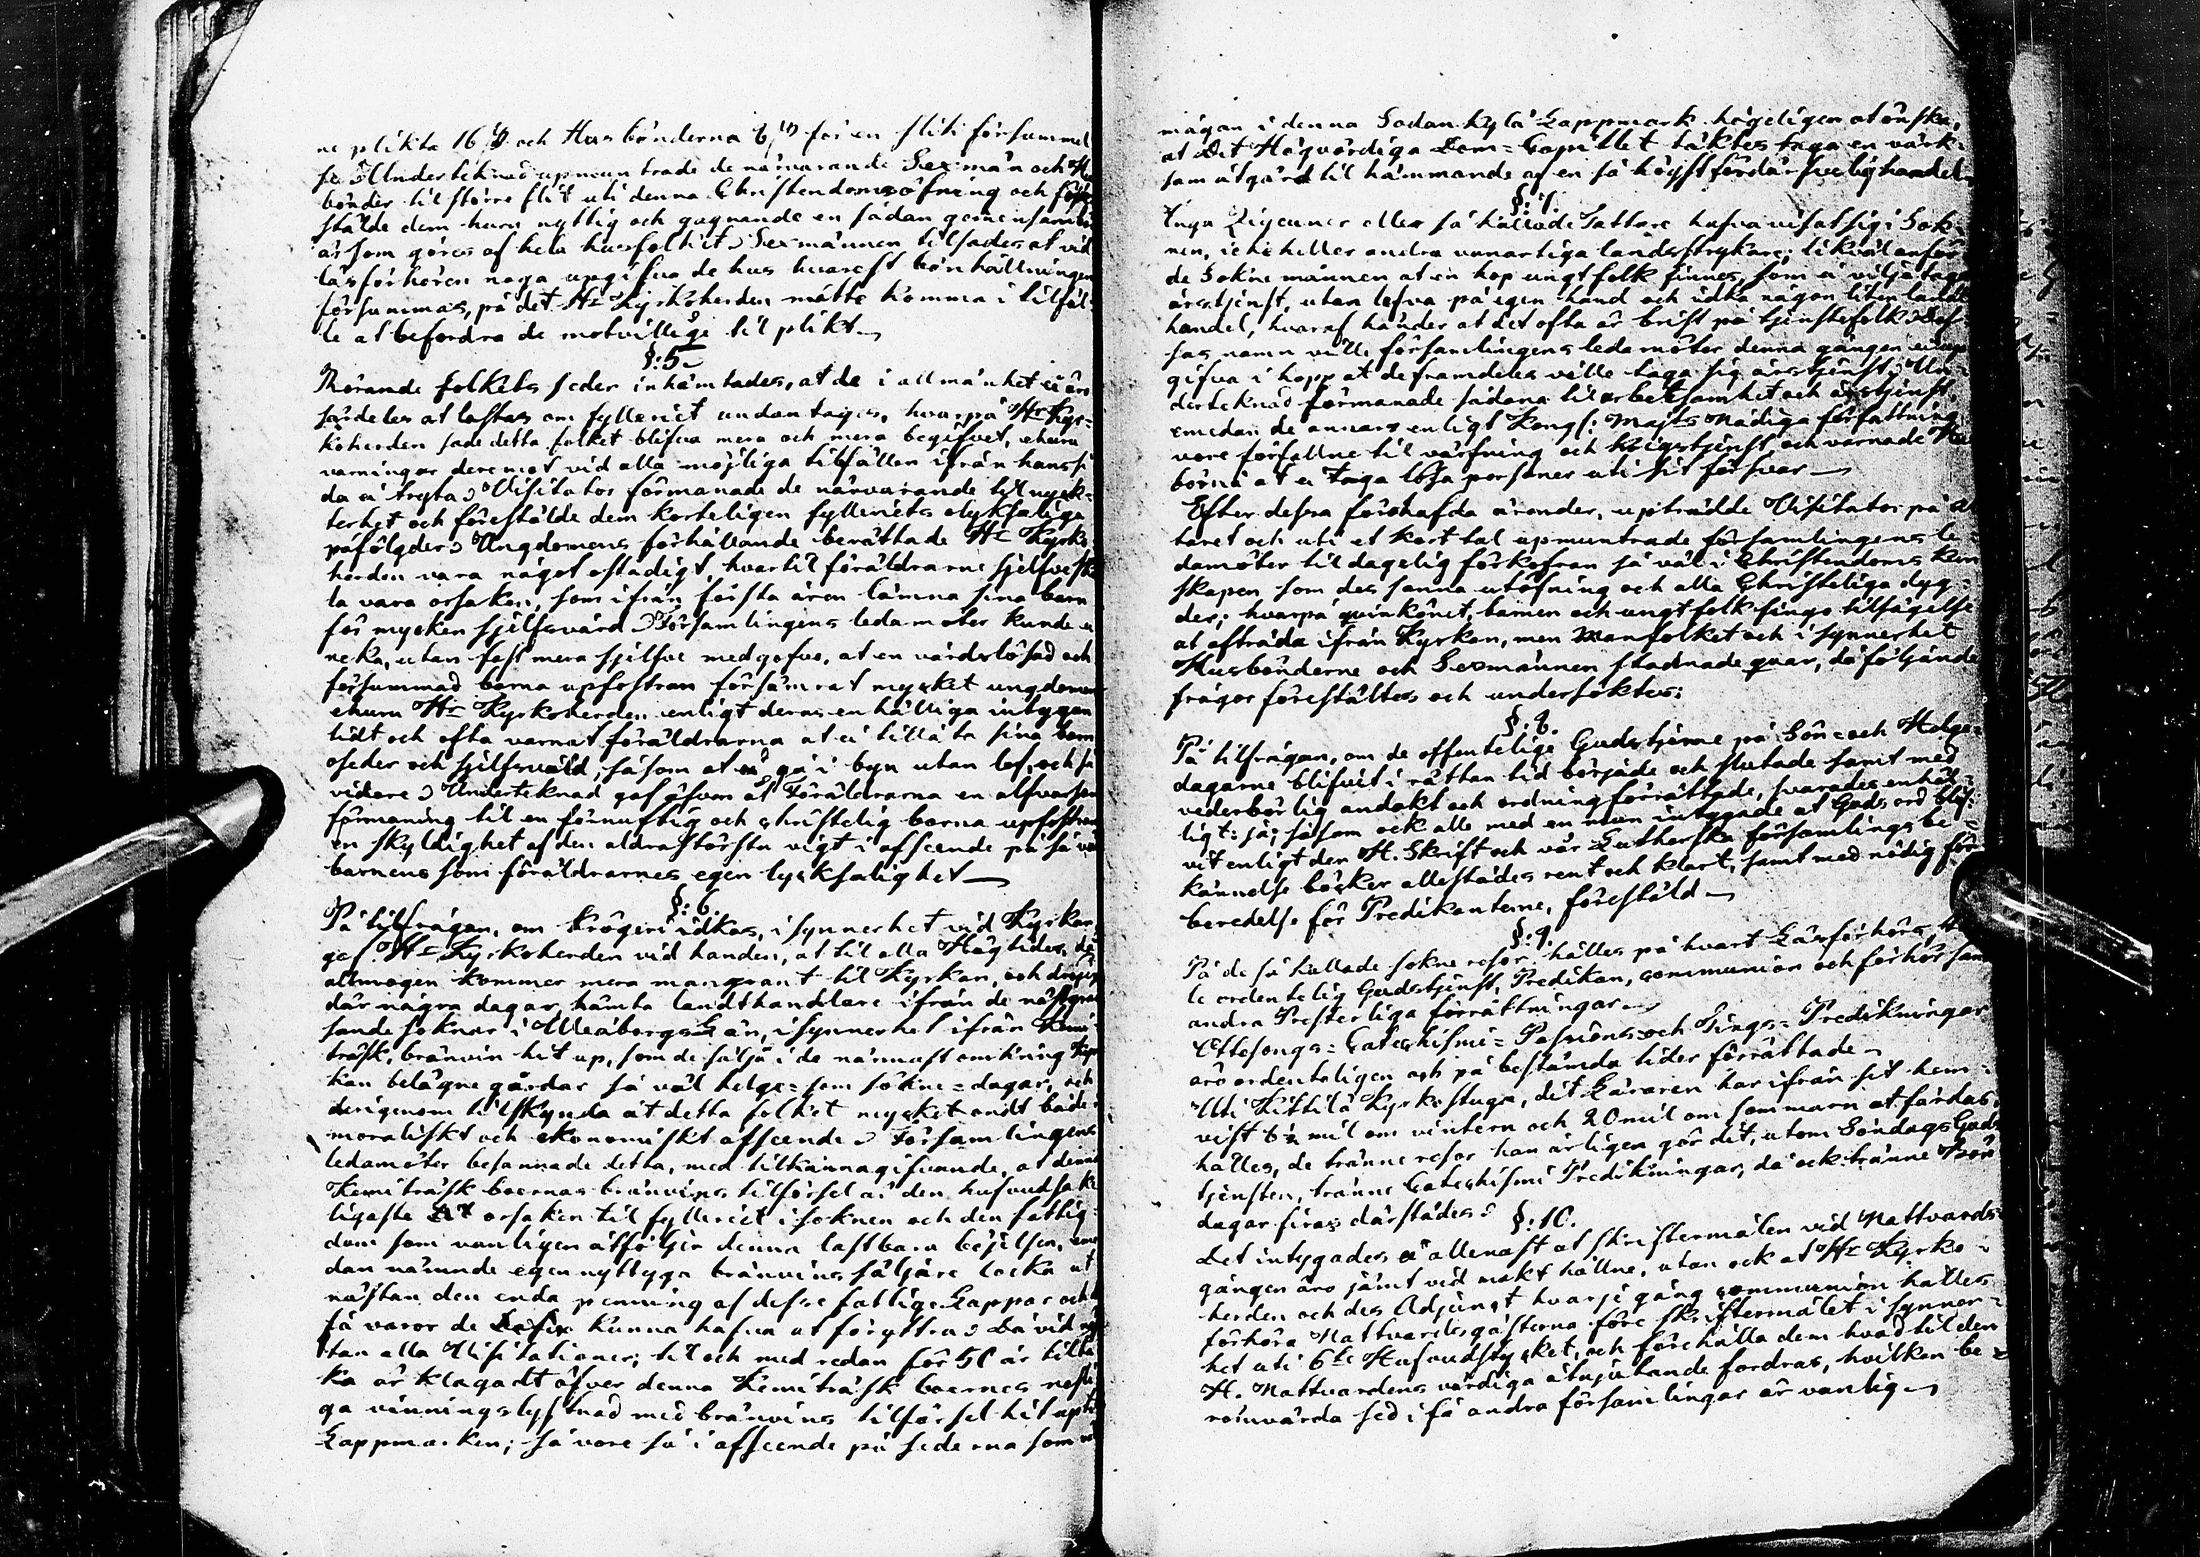 ne plikta 16 ß och Husbönderna 8 ß för en slik försummel
se Undertecknad upmuntrade de närvarande Sexmän och
bönder til större flit uti denna Christendomsöfning och före
stälde dem huru nyttig och gagnande en sådan gemensam
är som göres af hela husfolket. Sexmännen tilsades at vid
läsförhören noga upgifva de hus hvarest bönhållningen
försummas, på det Hr Kyrkoherden måtte komma i tilfäl-
le at befordra de motvillige til plikt.
§: 5.
Rörande folkets seder inhämtades, at de i allmänhet ei äro
särdeles at lastas om fylleriet undantages, hvarpå Hr Kyr-
koherden sade detta folket blifva mera och mera begifvet, ehuru
varningar deremot vid alla möjliga tilfällen ifrån hans si
da ei tryta. Visitator förmanade de närvarande til nyck-
terhet och förestälde dem korteligen fylleriets olyksaliga
påfölgder. Ungdomens förhållande berättade Hr Kyrko
herden vara något ostadigt, hvartil föräldrarne sjelfve sk
la vara orsaken, som ifrån första åren lämna sina barn
för mycken sjelfsvård. Församlingens ledamöter kunde ei
neka, utan fast mera sjelfve medgofvo, at en vårdslösad och
försummad barna upfostran försämrat mycket ungdomen
ehuru Hr Kyrkoherden enligt deras enhälliga intygan
tidt och ofta varnat föräldrarna at ei tillåta sina barn
oseder och sjelfsvåld, såsom at gå i byn utan lof, och så
vidare. Undertecknad gaf äfven åt Föräldrarna en alfvarsam
förmaning til en förnuftig och christelig barna upfostran
en skyldighet af den aldrastörsta vigt i afseende på så väl
barnens som föräldrarnes egen lycksalighet
§: 6.
På tilfrågan, om krögeri idkas, i synnerhet vid Kyrkan,
gaf Hr Kyrkoherden vid handen, at til alla Högtider, då
allmogen kommer mera mangrant til Kyrkan, och dröjer
där några dagar, hämta landthandlare ifrån de näst grän
sande soknar i Uleåborgs Län, i synnerhet ifrån Kemi-
träsk, bränvin hit up, som de sälja i de närmast omkring Kyr
kan belägne gårdar så väl helge- som sökne-dagar, och
derigenom tilskynda åt detta folket mycket ondt både i
moraliskt och ekonomiskt afseende. Församlingens
ledamöter besannade detta, med tilkännagifvande, at denna
Kemiträsk boernas bränvins tilförsel är den hufvudsake
ligaste orsaken til fylleriet i soknen och den fattig-
dom som vanligen åtfölgja denna lastbara böjelsen, eme
dan nämnde egennyttyga bränvins säljare locka ut
nästan den enda penning af desse fattige Lappar och
få varor de kunna hafva at föryttra. Då vid
tan alla Visitationer, til och med redan för 50 år tilba
ka är klagadt öfver denna Kemiträsk boernes
ga vinningslystnad med bränvins tilförsel hit up
Lappmarken; så vore så i afseende på sederna som
mågan i denna Sodankylä Lappmark högeligen at önska,
at Det Högvördiga Dom-Capitlet täktes taga en värk-
sam åtgärd til hämmande af en så högst fördärfvelig handel.
§: 7.
Inga Zigeuner eller så kallade Tattare hafva visat sig i Sok-
nen, icke heller andra vanartiga landsstrykare; likväl anför
de Soknemännen at en hop ungt folk finnes, som ei vilja taga
årstjenst, utan lefva på egen hand och idka någon liten landt
handel, hvaraf händer at det ofta är brist på tjenstefolk. Des-
sas namn ville församlingens ledamöter denna gången ei up
gifva i hopp at de framdeles ville taga sig årstjenst. Un-
dertecknad förmanade sådana til arbetsamhet och årstjenst,
emedan de annars enligt Kongl: Majts Nådiga författning
vore förfallne til värfning och krigstjenst och varnade
börna at ei taga lösa personer uti sit försvar
Efter dessa förehafda ärender, upträdde Visitator på al
taret och uti et kort tal upmuntrade församlingens le-
damöter til dagelig förkofran så väl i Christendoms kun
skapen som des sanna utöfning och alla Christeliga dyg-
der; hvarpå quinkönet, barnen och ungt folk fingo tilsägelse
at afträda ifrån Kyrkan, men Manfolket och i synnerhet
Husbönderne och Sexmännen stadnade qvar, då följande
frågor förestältes och undersöktes:
§: 8.
På tilfrågan, om de offentelige Gudstjenne på Sön- och Helge-
dagarne blifvit i rättan tid började och slutade samt med
vederbörlig andakt och ordning förrättade, svarades enhäl-
ligt: ja; såsom ock alle med en mun intygade at Guds ord blif-
vit enligt den H. Skrift och vår Lutherska församlings be-
kännelse böcker allestädes rent och klart, samt med nödig för
beredelse för Predikanterne, förestäld
§: 9.
På de så kallade sokne resor, hålles på hvart Läsförhörs stäl
le ordentelig Gudstjenst, Predikan, communion och förhör samt
andra Presterliga förrättningar.
Ottesongs- Catechismi- Passions- och Tings- Predikningar
äro ordenteligen och på bestämda tider förrättade
Uti Kittilä Kyrkostuga, dit Läraren har ifrån sit hem-
vist 6½ mil om vintern och 20 mil om sommarn at färdas,
hålles, de tränne resor han årligen gör dit, utom Söndags Guds
tjensten, tränne Catechismi Predikningar, då ock tränne Bön
dagar firas därstädes.
§: 10.
Det intygades ei allenast at skriftermålen vid Nattvards
gången äro jämt vid makt hållne, utan ock at Hr Kyrko-
herden och des Adjunct hvarje gång communion hålles
förhöra Nattvardsgästerna före skriftermålet i synner-
het uti 6te Hufvudstycket, och förehålla dem hvad til den
H. Nattvardens värdiga åtnjutande fordras, hvilken be-
römvärda sed i få andra församlingar är vanlig